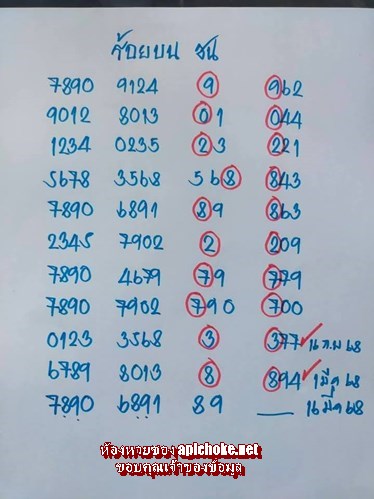 ร้อยบน ชน
7890 9124 9 962
9012 8013 01 044
1234 0235 23 221
5678 3568 568 843
7890 6891 89 863
2345 7902 2 209
7890 4679 79 779
7890 7902 790 700
0123 3568 3 377 16 ก.พ 68
6789 8013 8 894 1 มีค 68
7890 6891 89 — 16 มีค 68
ห้องหวยซอง apichoke.net
ขอบคุณเจ้าของข้อมูล